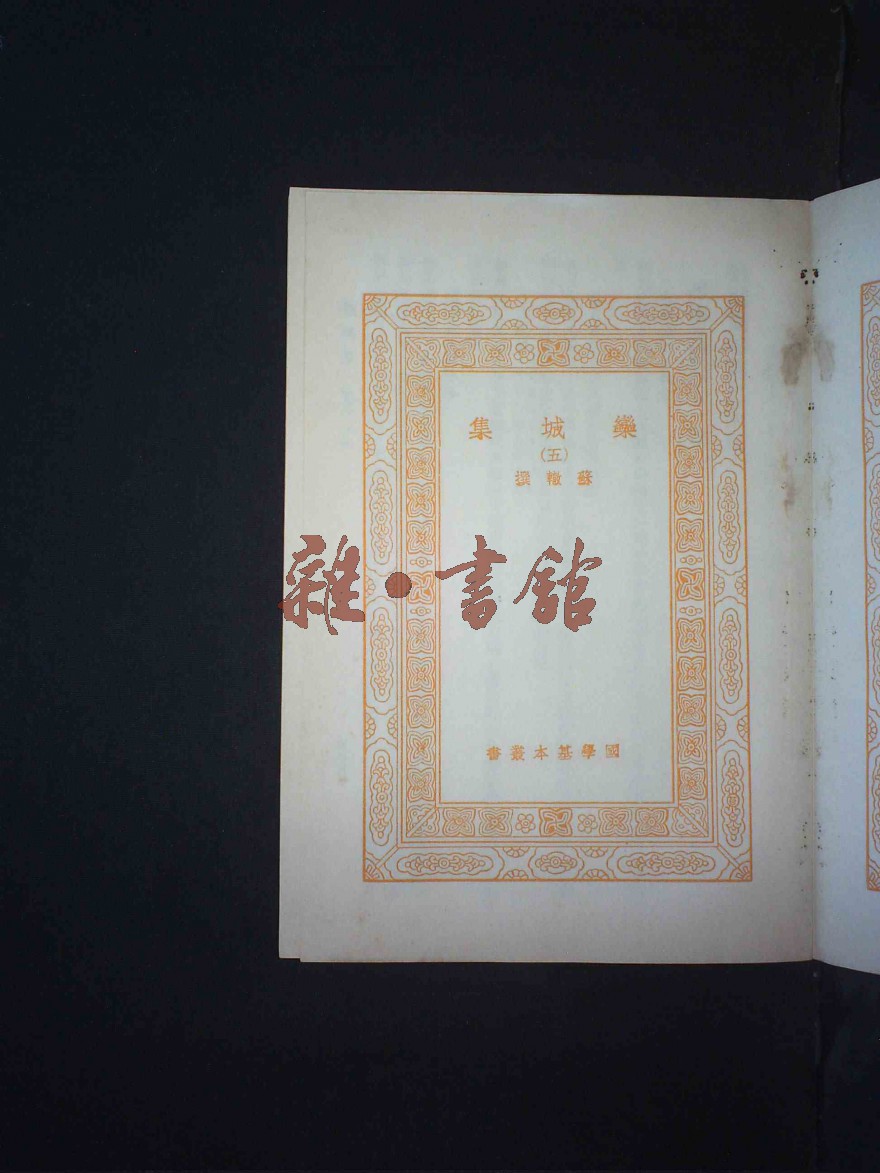 欒城集
(五)
蘇轍撰
雜•書館
國學基本叢書